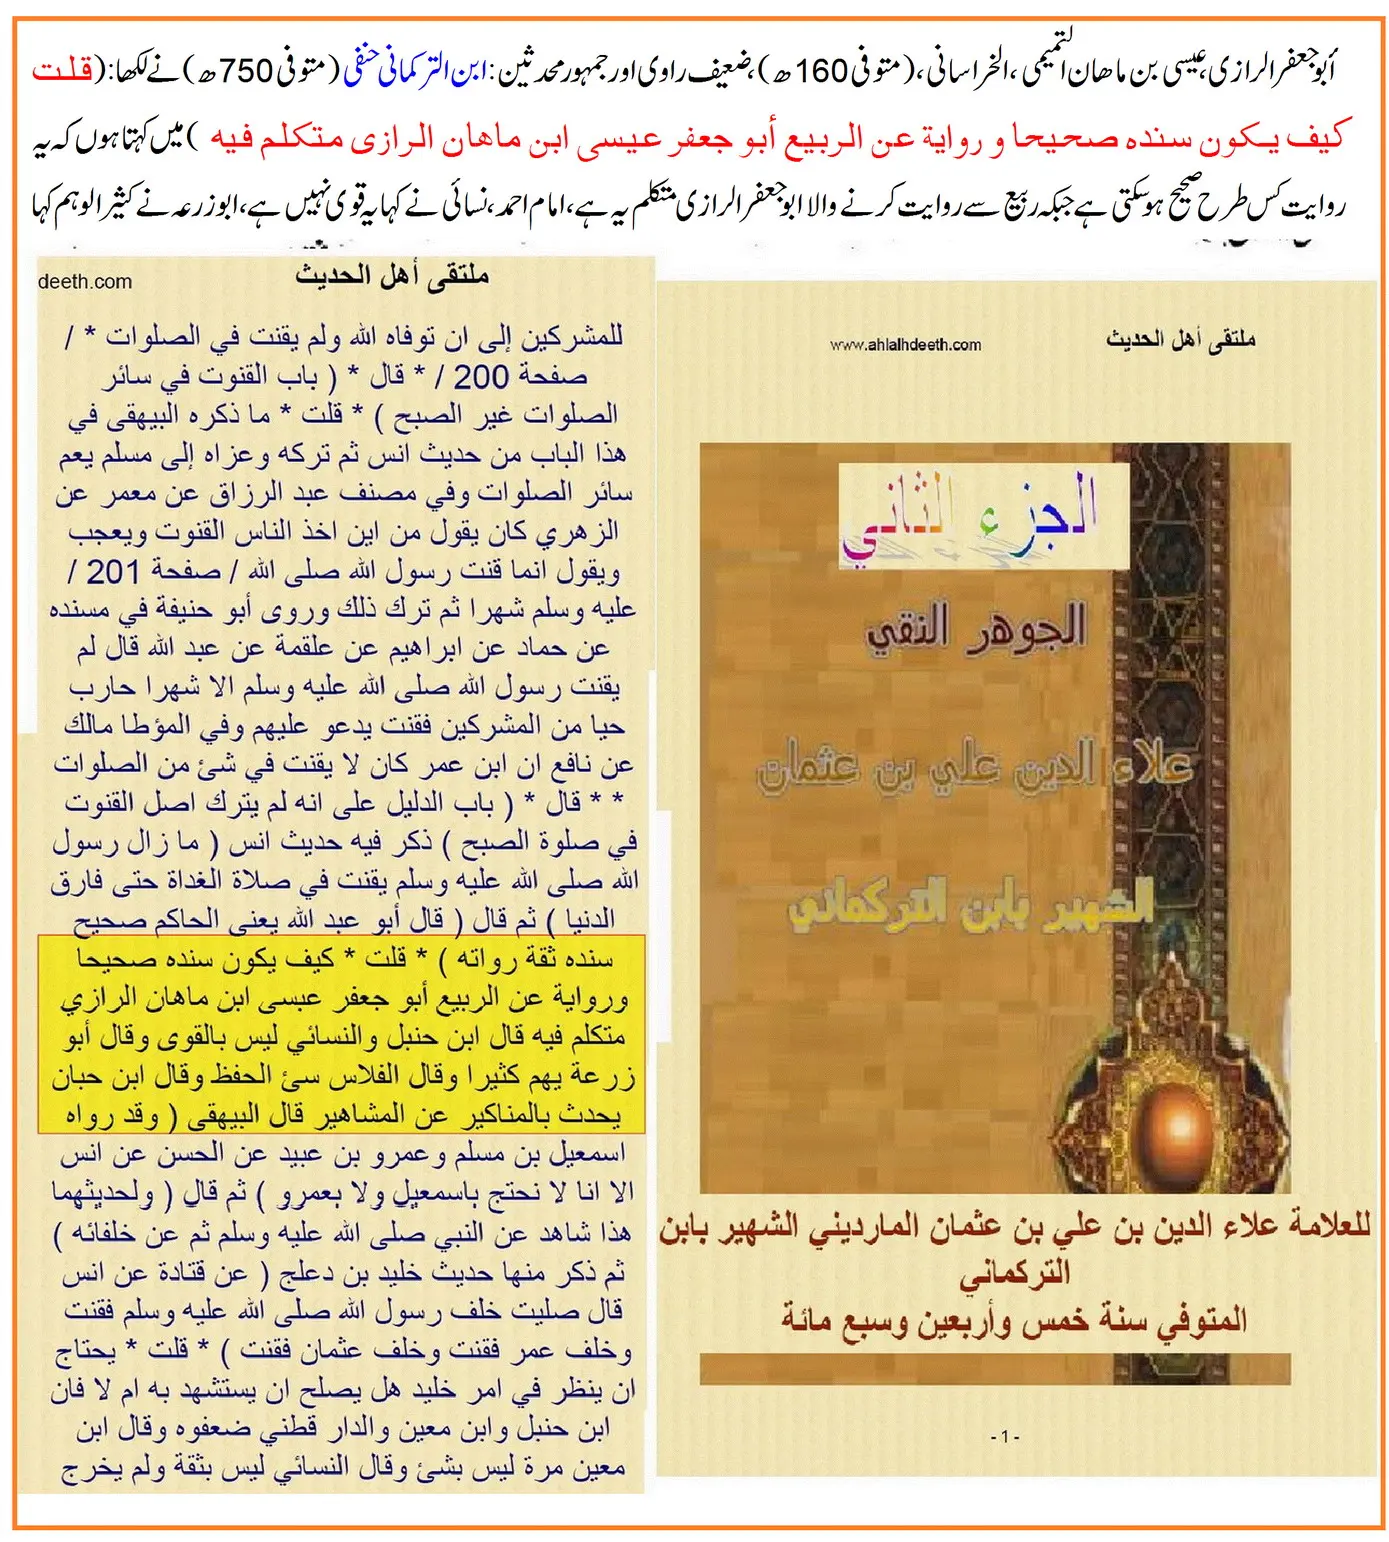 أبو جعفر الرازی، عیسی بن ماهان التمیمی، الخراسانی، (متوفی 160ھ)، ضعیف راوی اور جمہور محدثین: ابن الترکمانی حنفی (متوفی 750ھ) نے لکھا: (قلت
كيف يكون سنده صحيحا و رواية عن الربيع أبو جعفر عيسى ابن ماهان الرازى متكلم فيه ) میں کہتا ہوں کہ یہ
روایت کس طرح صحیح ہو سکتی ہے جبکہ ربیع سے روایت کرنے والا ابو جعفر الرازی متکلم یہ ہے، امام احمد، نسائی نے کہا یہ قوی نہیں ہے، ابوزرعہ نے کثیر الوہم کہا
ملتقى أهل الحديث
deeth.com
للمشركين إلى ان توفاه الله ولم يقنت في الصلوات * /
صفحة 200 / * قال * ( باب القنوت في سائر
الصلوات غير الصبح ) * قلت * ما ذكره البيهقى في
هذا الباب من حديث انس ثم تركه وعزاه إلى مسلم يعم
سائر الصلوات وفي مصنف عبد الرزاق عن معمر عن
الزهري كان يقول من اين اخذ الناس القنوت ويعجب
ويقول انما قنت رسول الله صلى الله / صفحة 201 /
عليه وسلم شهرا ثم ترك ذلك وروى أبو حنيفة في مسنده
عن حماد عن ابراهيم عن علقمة عن عبد الله قال لم
يقنت رسول الله صلى الله عليه وسلم الا شهرا حارب
حيا من المشركين فقنت يدعو عليهم وفي المؤطا مالك
عن نافع ان ابن عمر كان لا يقنت في شئ من الصلوات
* * قال * ( باب الدليل على انه لم يترك اصل القنوت
في صلوة الصبح ) ذكر فيه حديث انس ( ما زال رسول
الله صلى الله عليه وسلم يقنت في صلاة الغداة حتى فارق
الدنيا ) ثم قال ( قال أبو عبد الله يعنى الحاكم صحيح
سنده ثقة رواته ) * قلت * كيف يكون سنده صحيحا
ورواية عن الربيع أبو جعفر عبسى ابن ماهان الرازي
متكلم فيه قال ابن حنبل والنسائي ليس بالقوى وقال أبو
زرعة يهم كثيرا وقال الفلاس سئ الحفظ وقال ابن حبان
يحدث بالمناكير عن المشاهير قال البيهقى ( وقد رواه
اسمعيل بن مسلم وعمرو بن عبيد عن الحسن عن انس
الا انا لا نحتج باسمعيل ولا بعمرو ) ثم قال ( ولحديثهما
هذا شاهد عن النبي صلى الله عليه وسلم ثم عن خلفائه )
ثم ذكر منها حديث خليد بن دعلج ( عن قتادة عن انس
قال صليت خلف رسول الله صلى الله عليه وسلم فقنت
وخلف عمر فقنت وخلف عثمان فقنت ) * قلت * يحتاج
ان ينظر في امر خليد هل يصلح ان يستشهد به ام لا فان
ابن حنبل وابن معين والدار قطني ضعفوه وقال ابن
معين مرة ليس بشئ وقال النسائي ليس بثقة ولم يخرج
ملتقى أهل الحديث
www.ahlalhdeeth.com
الجزء الثاني
الجوهر النقي
علاء الدين علي بن عثمان
الشهير بابن التركماني
للعلامة علاء الدين بن علي بن عثمان المارديني الشهير بابن
التركماني
المتوفي سنة خمس وأربعين وسبع مائة
- 1 -